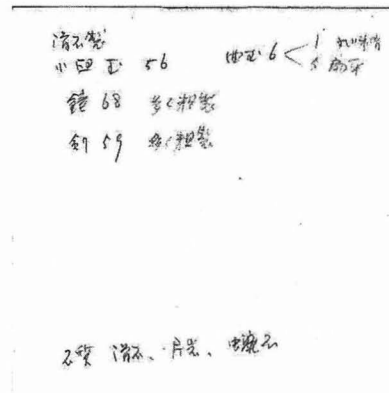 滑石製
小臼玉 56 曲玉 6 < 1
5 扁平
鏡 68 多く粗製
剣 59 多く粗製
石質 滑石、片岩、蛇紋石